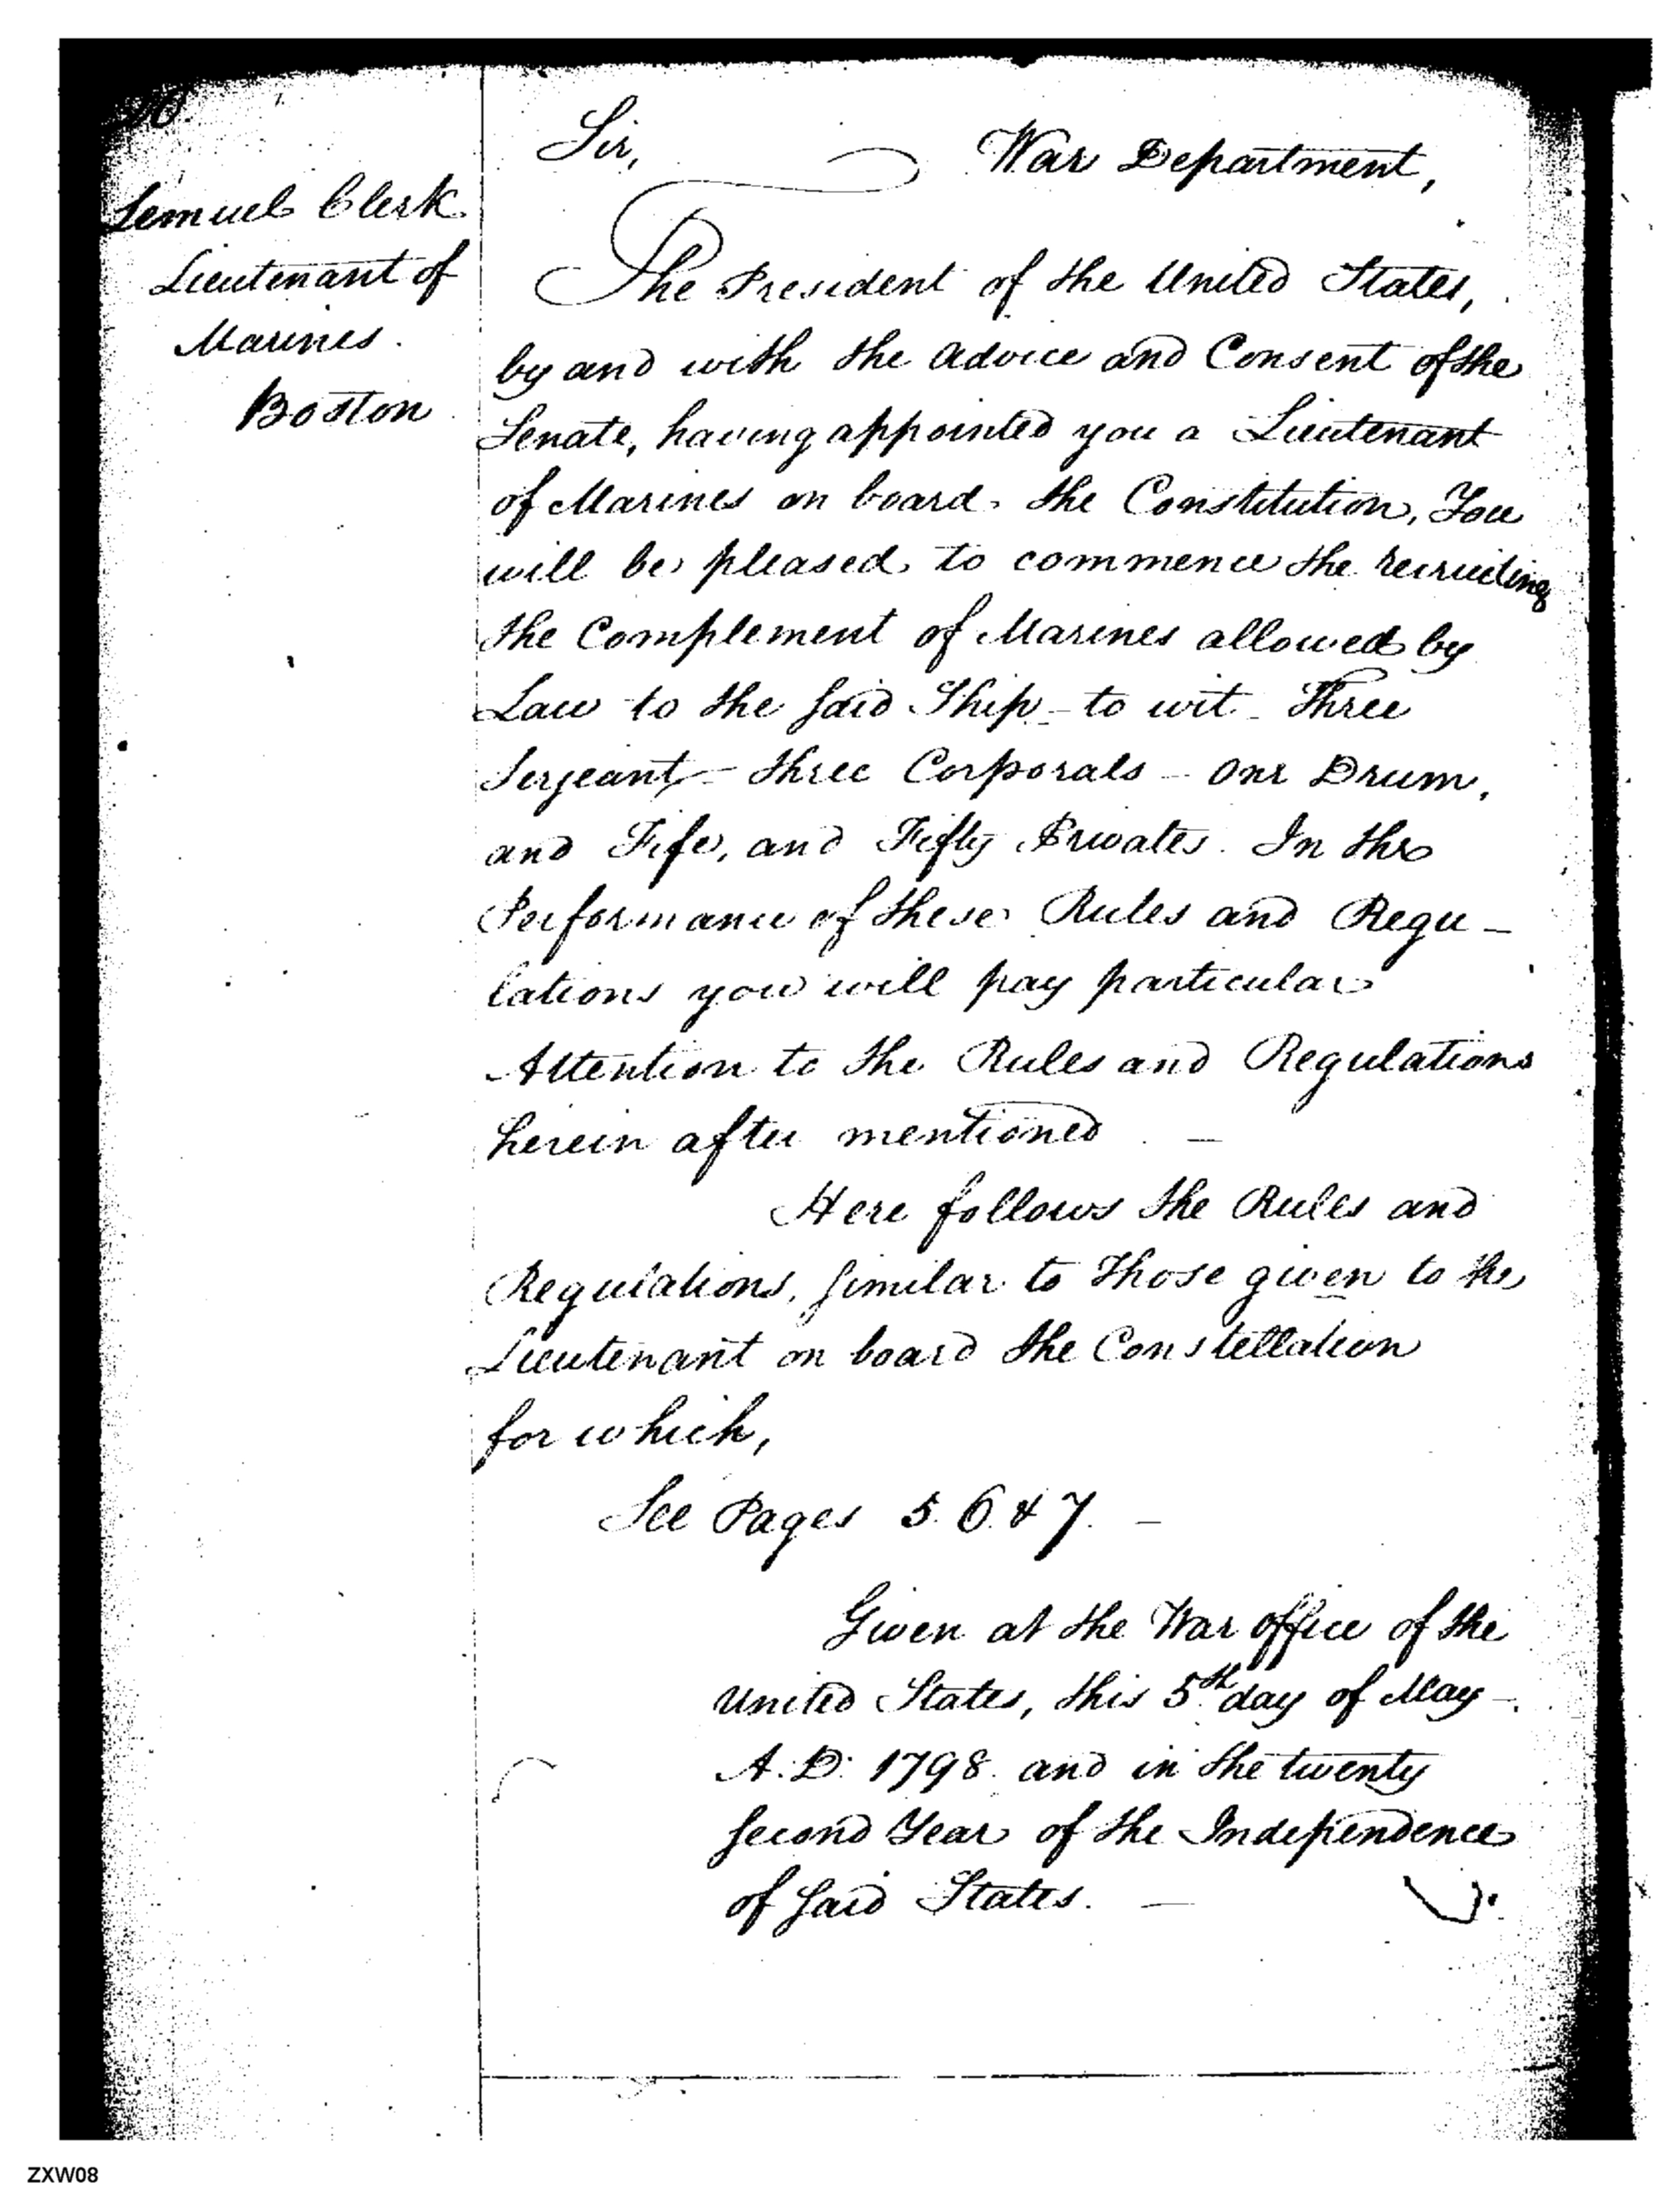 Lemuel Clerk
Lieutenant of
Marines.
Boston
Sir,
War Department,
The President of the United States,
by and with the Advice and Consent of the
Senate, having appointed you a Lieutenant
of Marines on board the Constitution, You
will be pleased to commence the recruiting
the Complement of Marines allowed by
Law to the said Ship - to wit - Three
Sergeants - three Corporals - One Drum,
and Fife, and Fifty Privates. In the
Performance of these Rules and Regu -
lations you will pay particular
Attention to the Rules and Regulations
herein after mentioned . -
Here follows the Rules and
Regulations, similar to those given to the
Lieutenant on board the Constellation
for which,
See Pages 5. 6. & 7. -
Given at the War office of the
United States, this 5th day of May -.
A. D. 1798. and in the twenty
second Year of the Independence
of said States. -
ZXW08